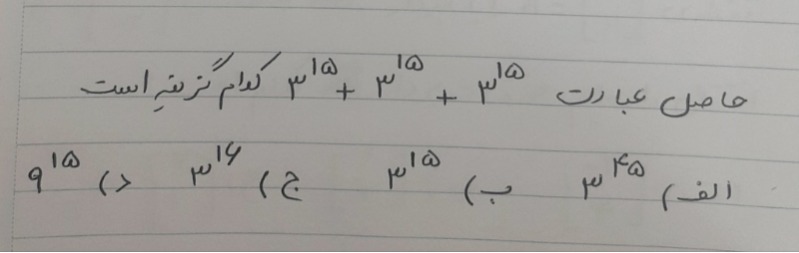 حاصل عبارت ۳^۱۵ + ۳^۱۵ + ۳^۱۵ کدام گزینهٔ است
الف) ۳^۴۵ ب) ۳^۱۵ ج) ۳^۱۶ د) ۹^۱۵